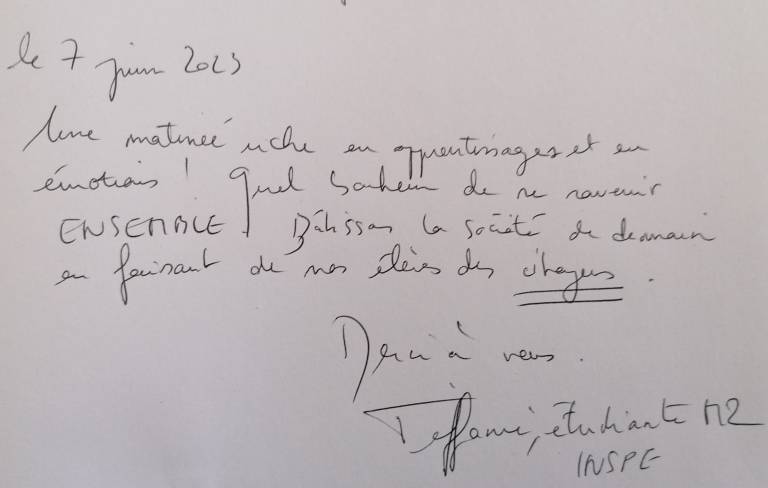 le 7 juin 2023
Une matinée riche en apprentissages et en
émotions ! Quel bonheur de se souvenir
ENSEMBLE ! Bâtissons la société de demain
en faisant de nos élèves des citoyens.
Merci à vous.
Tiffanie, étudiante M2
INSPE